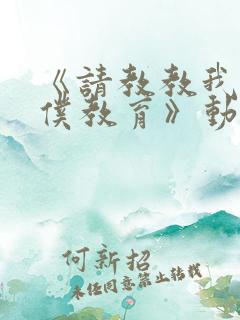 《請教教我
僕教育》動
何新招
未经同意禁止转载